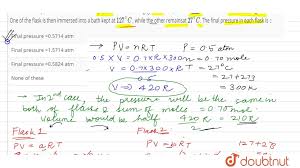 One of the flask is then immersed into a bath kept at 127°C, while the other remains at 27°C. The final pressure in each flask is :
Final pressure =0.5714 atm
Final pressure =1.5714 atm
Final pressure =0.5824 atm
None of these
→ PV = nRT P = 0.5 atm
0.5 X V = 0.7 X R X 300
n = 0.70 mole
V = 0.7 X 300 X R
0.5
T = 27°C
= 27+273
= 300K
V ⇒ 420 R
→ In 2nd case, the pressure will be the same in
both of flasks & sum of moles = 0.70 mole.
Volume would be half 420R = 210R
2
Flask 1
Flask 2
PV = nRT
PV = nRT
127+273
doubtnut